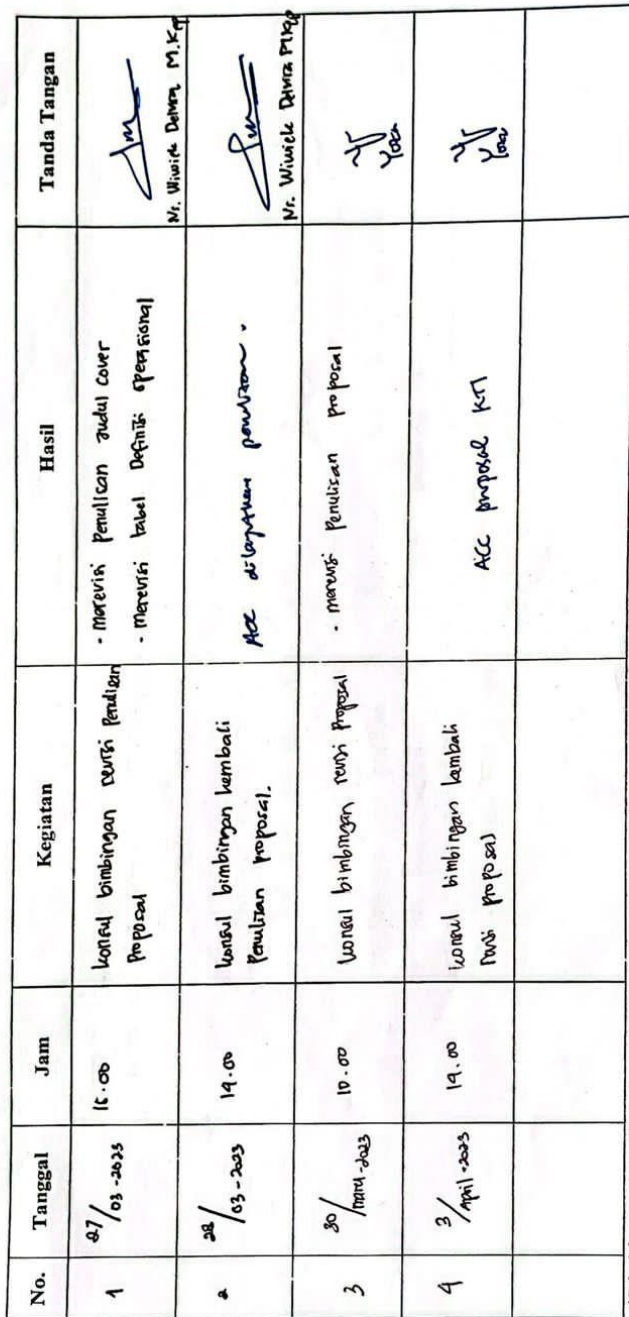 No. Tanggal Jam Kegiatan Hasil Tanda Tangan
1 27/03-2023 15.00 konsul bimbingan revisi Penulisan - merevisi Penulisan Judul cover
Proposal - Merevisi tabel Definisi operasional
Ns. Wiwiek Delvira M.Kep
2 28/03-2023 14.00 konsul bimbingan kembali ACC
Penulisan proposal.
Ns. Wiwiek Delvira M.Kep
3 30/maret-2023 10.00 konsul bimbingan revisi Proposal - merevisi Penulisan proposal
4 3/April-2023 14.00 konsul bimbingan kembali ACC proposal KTI
revisi proposal